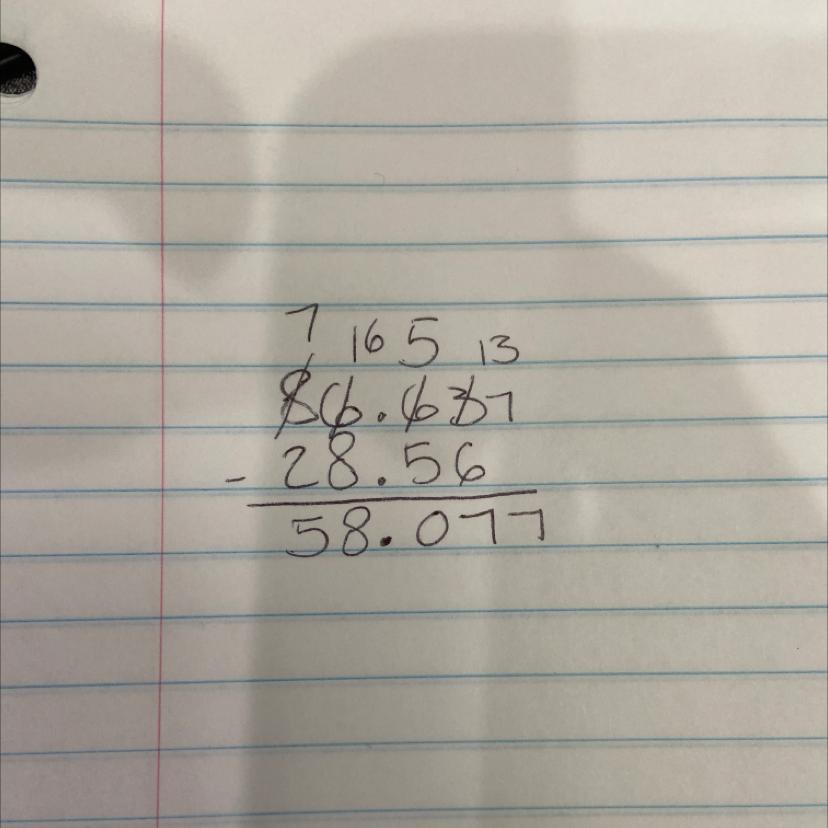 7 16 5 13
86.637
- 28.56
58.077